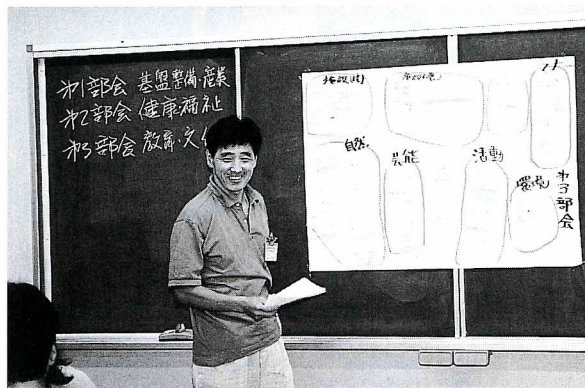 第1部会 基盤整備・産業
第2部会 健康・福祉
第3部会 教育・文
自然
芸能
活動
環境
第3部会